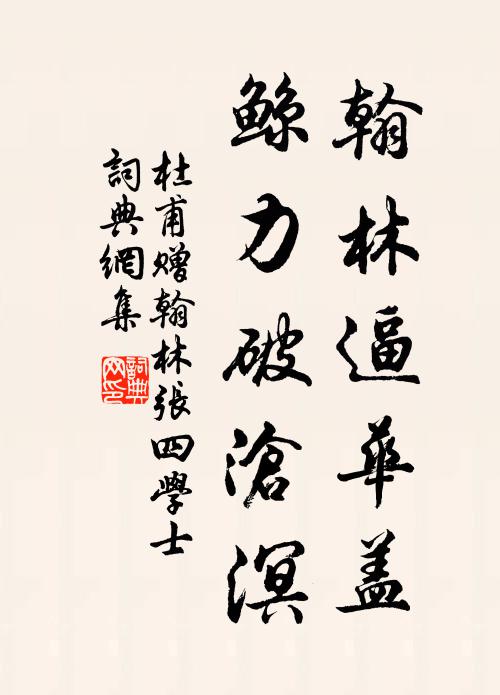 翰林逼華蓋
鲸力破滄溟
杜甫赠翰林張四學士
詞典網集
詞典网印